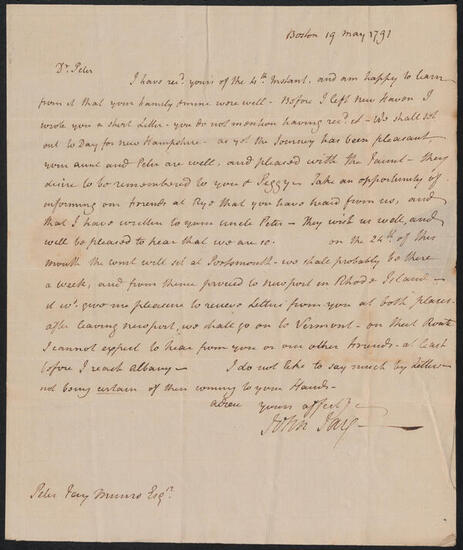 Boston 19 May 1791
Dr. Peter
I have recd. yours of the 4th Instant, and am happy to learn
from it that your family & mine were well - Before I left New Haven I
wrote you a short Letter - you do not mention having recd. it - We shall set
out to Day for new Hampshire - as yet the Journey has been pleasant,
your aunt and Peter are well, and pleased with the Jaunt - they
desire to be remembered to you & Peggy - Take an opportunity of
informing our Friends at Rye that you have heard from us, and
that I have written to your uncle Peter - They wish us well, and
will be pleased to hear that we are so. on the 24th. of this
month the court will sit at Portsmouth - we shall probably be there
a week, and from thence proceed to newport in Rhode Island -
it wd. give me pleasure to receive Letters from you at both places.
after leaving newport, we shall go on to Vermont - on that Route
I cannot expect to hear from you or our other Friends - at least
before I reach Albany - I do not like to say much by Letters
not being certain of their coming to your Hands -
adieu yours affectly
John Jay -
Peter Jay Munro Esqr.